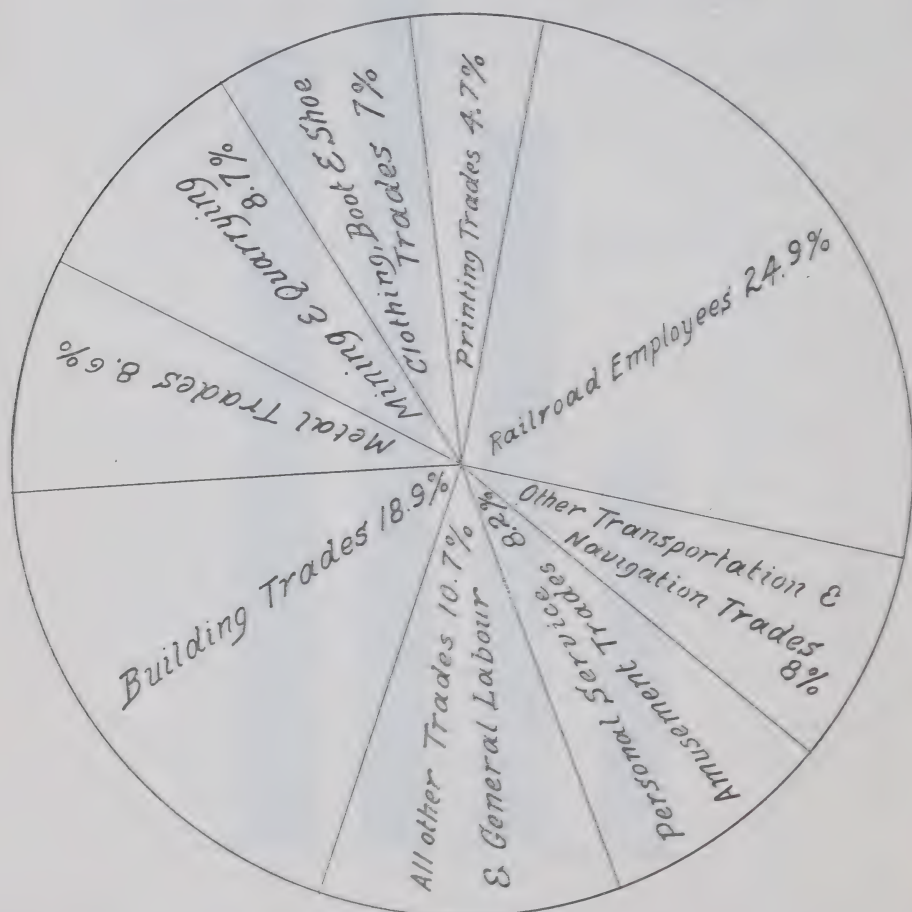 Railroad Employees 24.9%
Other Transportation &
Navigation Trades
8%
Personal Service
Amusement Trades
8.2%
All other Trades 10.7%
& General Labour
Building Trades 18.9%
Metal Trades 8.6%
Mining & Quarrying
8.7%
Clothing, Boot & Shoe
Trades 7%
Printing Trades 4.7%